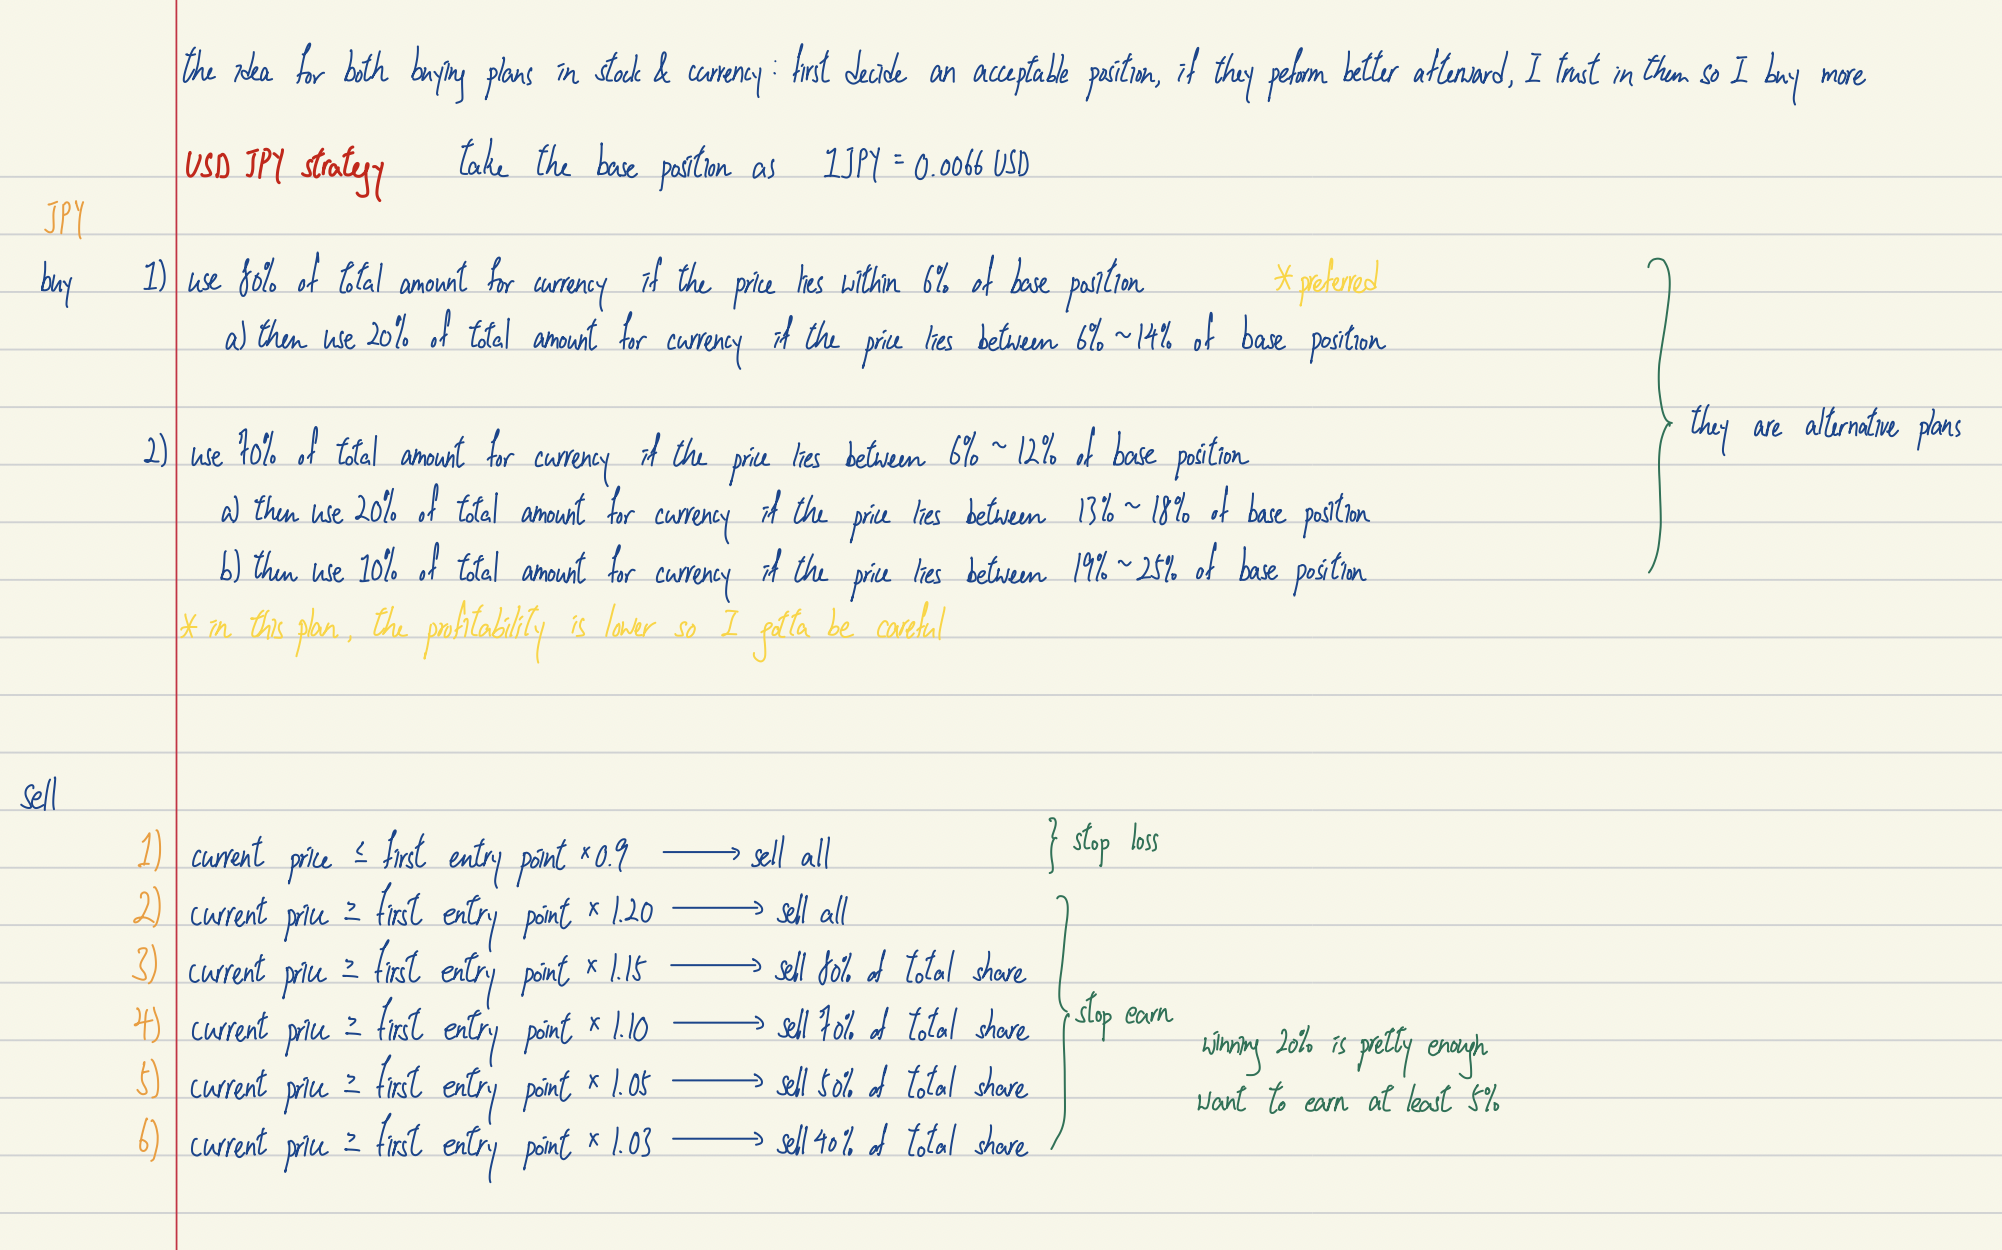 the idea for both buying plans in stock & currency: first decide an acceptable position, if they peform better afterward, I trust in them so I buy more
USD JPY strategy take the base position as 1JPY = 0.0066 USD
JPY
buy 1) use 80% of total amount for currency if the price lies within 6% of base position * preferred
a) then use 20% of total amount for currency if the price lies between 6% ~ 14% of base position
they are alternative plans
2) use 70% of total amount for currency if the price lies between 6% ~ 12% of base position
a) then use 20% of total amount for currency if the price lies between 13% ~ 18% of base position
b) then use 10% of total amount for currency if the price lies between 19% ~ 25% of base position
* in this plan, the profitability is lower so I gotta be careful
sell
1) current price ≤ first entry point × 0.9 → sell all } stop loss
2) current price ≥ first entry point × 1.20 → sell all
3) current price ≥ first entry point × 1.15 → sell 80% of total share
4) current price ≥ first entry point × 1.10 → sell 70% of total share
stop earn
winning 20% is pretty enough
5) current price ≥ first entry point × 1.05 → sell 50% of total share
want to earn at least 5%
6) current price ≥ first entry point × 1.03 → sell 40% of total share